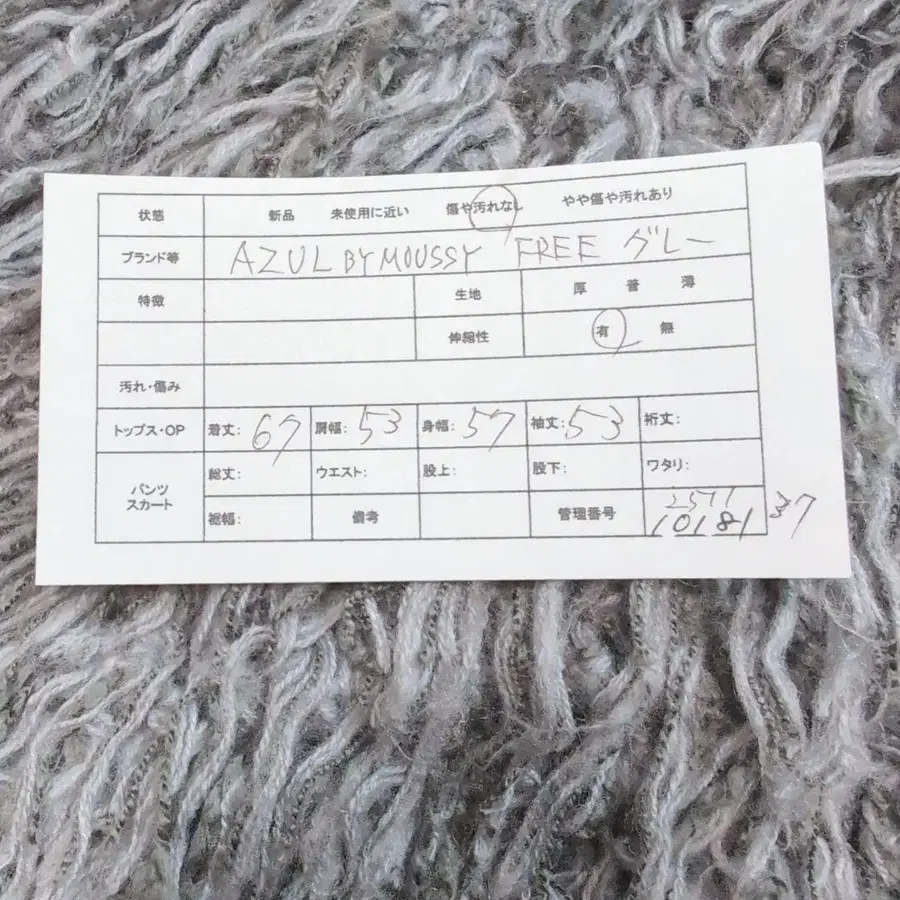 状態 新品 未使用に近い 傷や汚れなし やや傷や汚れあり
ブランド等 AZUL BY MOUSSY FREE グレー
特徴 生地 厚 普 薄
伸縮性 有 無
汚れ・傷み
トップス・OP 着丈: 67 肩幅: 53 身幅: 57 袖丈: 53 裄丈:
パンツ スカート 総丈: ウエスト: 股上: 股下: ワタリ:
裾幅: 備考 管理番号 2571
10181 37